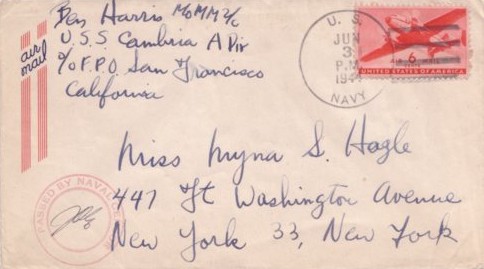 Ben Harris MoMM 2/c
U.S.S. Cambria A Div
c/o F.P.O. San Francisco
California
air
mail
U. S.
JUN
3
P.M.
194
NAVY
6¢
UNITED STATES OF AMERICA
Miss Myna S. Hagle
447 Ft Washington Avenue
New York 33, New York
PASSED BY NAVAL